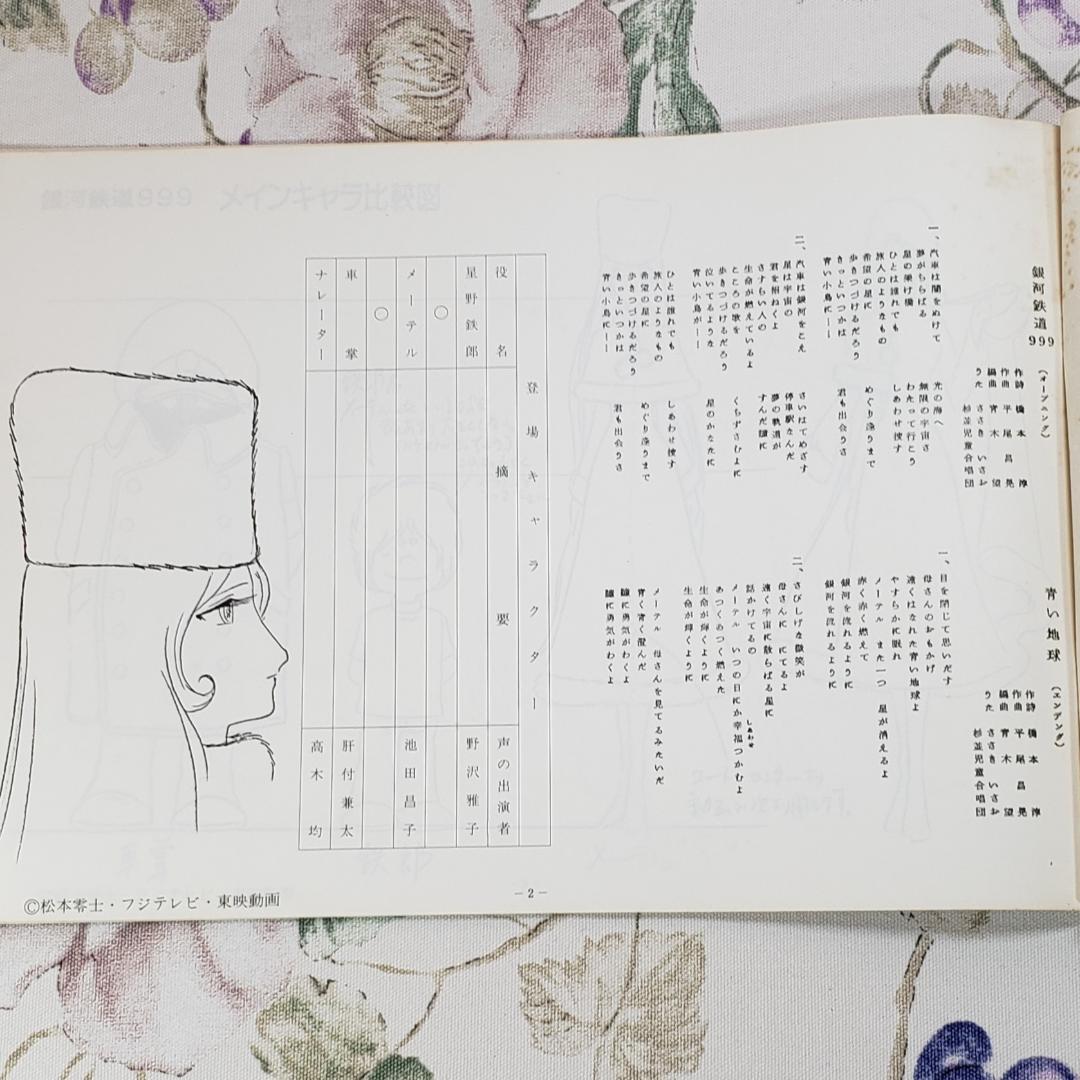 銀河鉄道999 (オープニング)
作詩 橋本 淳
作曲 平尾昌晃
編曲 青木 望
うた ささき いさお
杉並児童合唱団
一、汽車は闇をぬけて 光の海へ
夢がちらばる 無限の宇宙さ
星の架け橋 わたって行こう
ひとは誰れでも しあわせ捜す
旅人のようなもの
希望の星に めぐり逢うまで
歩きつづけるだろう
きっといつかは 君も出会うさ
青い小鳥に——
二、汽車は銀河をこえ さいはてめざす
星は宇宙の 停車駅なんだ
君を招ねくよ 夢の軌道が
さすらい人の すんだ瞳に
生命が燃えているよ
こころの歌を くちずさむよに
歩きつづけるだろう
泣いてるような 星のかなたに
青い小鳥が——
ひとは誰れでも しあわせ捜す
旅人のようなもの
希望の星に めぐり逢うまで
歩きつづけるだろう
きっといつかは 君も出会うさ
青い小鳥に——
青い地球 (エンデング)
作詩 橋本 淳
作曲 平尾昌晃
編曲 青木 望
うた ささき いさお
杉並児童合唱団
一、目を閉じて思いだす
母さんのおもかげ
遠くはなれた青い地球よ
やすらかに眠れ
メーテル また一つ 星が消えるよ
赤く赤く燃えて
銀河を流れるように
銀河を流れるように
二、さびしげな微笑が
母さんに にてるよ
遠く宇宙に散らばる星に
話かけてるの
メーテル いつの日にか幸福つかむよ
しあわせ
あつくあつく燃えた
生命が輝くように
生命が輝くように
メーテル 母さんを見てるみたいだ
青く青く澄んだ
瞳に勇気がわくよ
瞳に勇気がわくよ
登場キャラクター
役名 摘要 声の出演者
星野鉄郎 野沢雅子
○
メーテル 池田昌子
○
車掌 肝付兼太
ナレーター 高木 均
－2－
©松本零士・フジテレビ・東映動画
銀河鉄道999 メインキャラ比較図